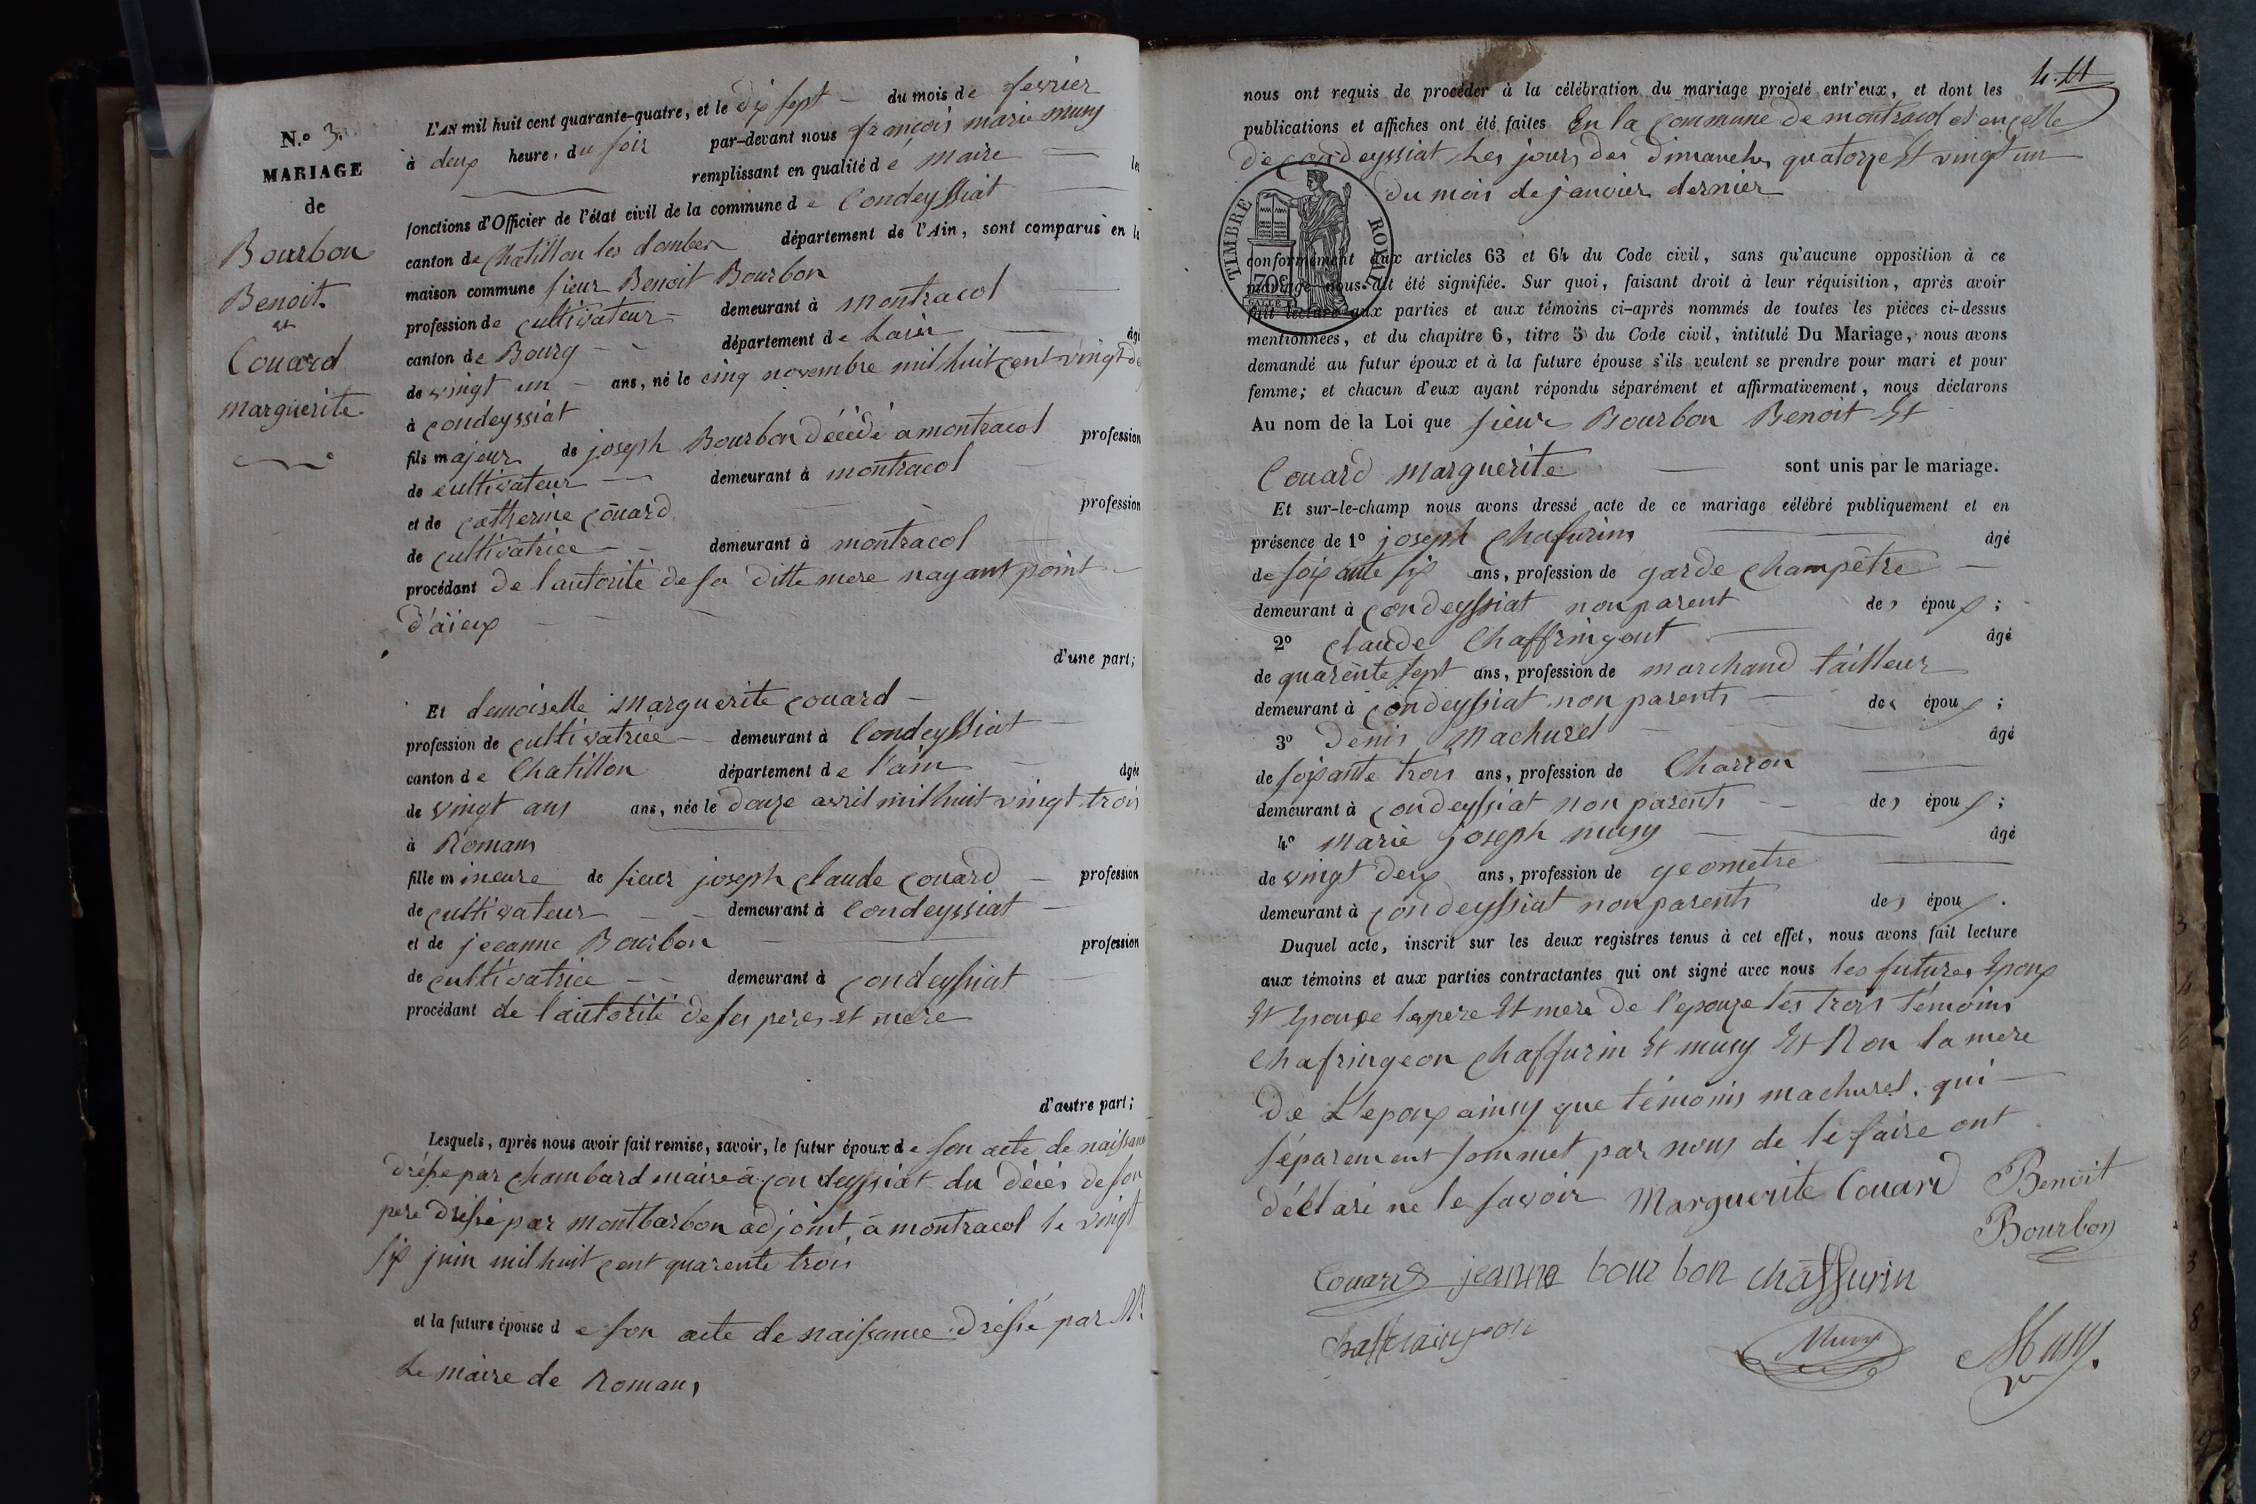 N.o 3.
MARIAGE
de
Bourbon
Benoit.
et
Couard
marguerite
L'AN mil huit cent quarante-quatre, et le dix sept du mois de fevrier
à deux heure, du soir par-devant nous françois marie musy
remplissant en qualité de maire les
fonctions d'Officier de l'état civil de la commune de Condeyssiat
canton de Chatillon les dombes département de l'Ain, sont comparus en la
maison commune sieur Benoit Bourbon
profession de cultivateur demeurant à montracol
canton de Bourg département de Lain âgé
de vingt un ans, né le cinq novembre mil huit cent vingt de
à condeyssiat
fils majeur de joseph Bourbon décédé a montracol profession
de cultivateur demeurant à montracol
et de catherine couard profession
de cultivatrice demeurant à montracol
procédant de l'autorité de sa ditte mere nayant point
d'äieux
d'une part;
Et demoiselle marguerite couard
profession de cultivatrice demeurant à Condeyssiat
canton de Chatillon département de l'ain âgée
de vingt ans ans, née le douze avril mil huit vingt trois
à Romans
fille mineure de sieur joseph claude couard profession
de cultivateur demeurant à Condeyssiat
et de jeanne Bourbon profession
de cultivatrice demeurant à condeyssiat
procédant de l'autorité de ses peres et mere
d'autre part;
Lesquels, après nous avoir fait remise, savoir, le futur époux de son acte de naissance
dréssé par chambard maire à condeyssiat du décés de son
pere dréssé par montbarbon adjoint, à montracol le vingt
six juin mil huit cent quarente trois
et la future épouse de son acte de naissance dréssé par Mr
Le maire de Romans
4.
nous ont requis de procéder à la célébration du mariage projeté entr'eux, et dont les
publications et affiches ont été faites En la commune de montracol et en celle
de condeyssiat Les jours des dimanches quatorze Et vingt un
du mois de janvier dernier
TIMBRE ROYAL
70c
conformément aux articles 63 et 64 du Code civil, sans qu'aucune opposition à ce
mariage nous ait été signifiée. Sur quoi, faisant droit à leur réquisition, après avoir
fait lecture aux parties et aux témoins ci-après nommés de toutes les pièces ci-dessus
mentionnées, et du chapitre 6, titre 5 du Code civil, intitulé Du Mariage, nous avons
demandé au futur époux et à la future épouse s'ils veulent se prendre pour mari et pour
femme; et chacun d'eux ayant répondu séparément et affirmativement, nous déclarons
Au nom de la Loi que sieur Bourbon Benoit Et
Couard marguerite sont unis par le mariage.
Et sur-le-champ nous avons dressé acte de ce mariage célébré publiquement et en
présence de 1o joseph Chafurin âgé
de soixante six ans, profession de garde champêtre
demeurant à condeyssiat non parent des époux;
2o claude Chaffringeont âgé
de quarente sept ans, profession de marchand tailleur
demeurant à condeyssiat non parents des époux;
3o denis Machurel âgé
de soixante trois ans, profession de Charron
demeurant à condeyssiat non parents des époux;
4o marie joseph musy âgé
de vingt deux ans, profession de geometre
demeurant à condeyssiat non parents des époux.
Duquel acte, inscrit sur les deux registres tenus à cet effet, nous avons fait lecture
aux témoins et aux parties contractantes qui ont signé avec nous les futures Epoux
Et Epouse les pere Et mere de l'epouze les trois témoins
Chafringeon chaffurin Et musy Et Non la mere
de L'epoux ainsy que témoins machurel. qui
séparement sommet par nous de le faire ont
déclaré ne le savoir Marguerite Couard Benoit
Bourbon
Couard jeanne bourbon chaffurin
Musy Musy.